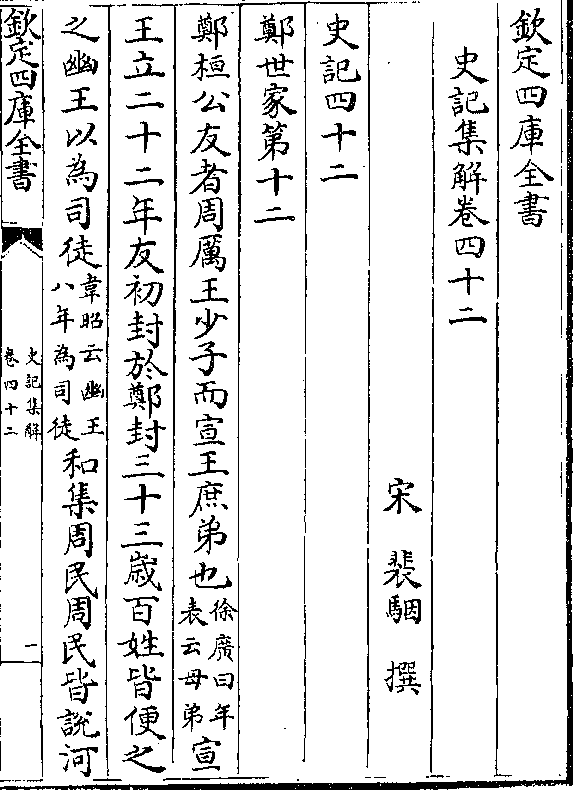 欽定四庫全書
史記集解卷四十二
宋 裴駰 撰
史記四十二
鄭世家第十二
鄭桓公友者周厲王少子而宣王庶弟也徐廣曰年表云母弟宣
王立二十二年友初封於鄭封三十三歲百姓皆便之
之幽王以為司徒韋昭云幽王八年為司徒和集周民周民皆說河
欽定四庫全書
史記集解
卷四十二
一